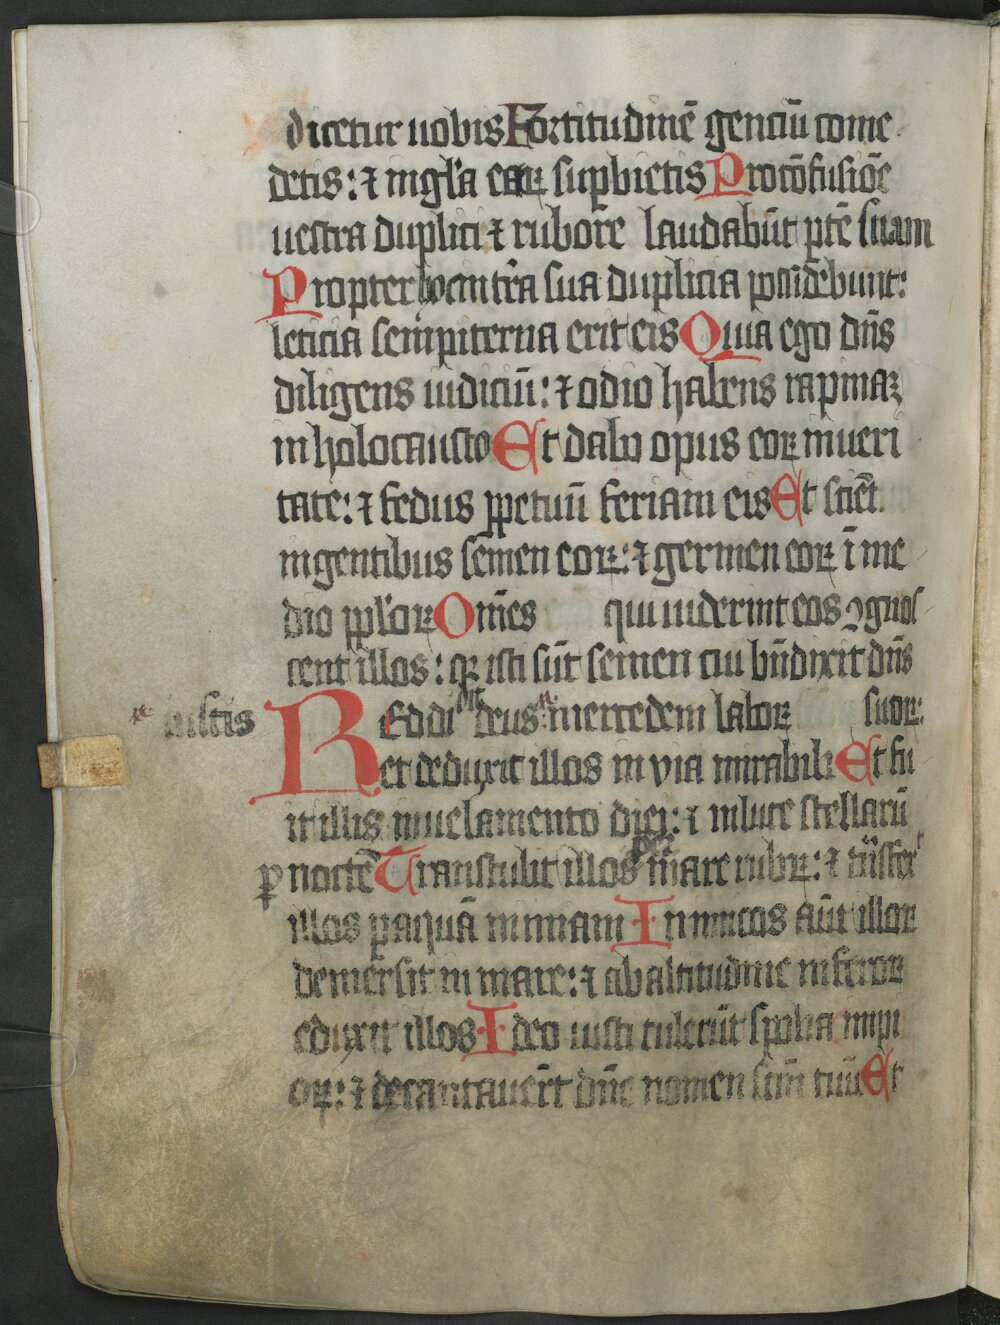 dicetur uobis Fortitudinē genciū come
detis: ⁊ in gl'a eaꝝ supbietis Pro cōfusiōe
uestra duplici ⁊ rubore laudabūt ptē suam
Propter hoc in tr̄a sua duplicia possidebunt:
leticia sempiterna erit eis Quia ego dn̄s
diligens iudiciū: ⁊ odio habens rapinaꝫ
in holocausto Et dabo opus eoꝝ in ueri
tate: ⁊ fedus ꝑpetuū feriam eis Et sciēt
in gentibus semen eoꝝ: ⁊ germen eoꝝ ī me
dio ppl'oꝝ Om̄es qui uiderint eos ꝯgnos
cent illos: qꝛ isti sūt semen cui bn̄dixit dn̄s
iustis Reddidit deus mercedem laboꝝ suoꝝ:
et deduxit illos in via mirabili Et fu
it illis in uelamento diei: ⁊ in luce stellarū
ꝑ noctē Transtulit illos per mare rubꝝ: ⁊ trāsfert
illos ꝑ aquā nimiam Inimicos aūt illoꝝ
demersit in mare: ⁊ ab altitudine inferoꝝ
eduxit illos Ideo iusti tulerūt spolia impi
oꝝ: ⁊ decantauer̄t dn̄e nomen scm̄ tuū Et